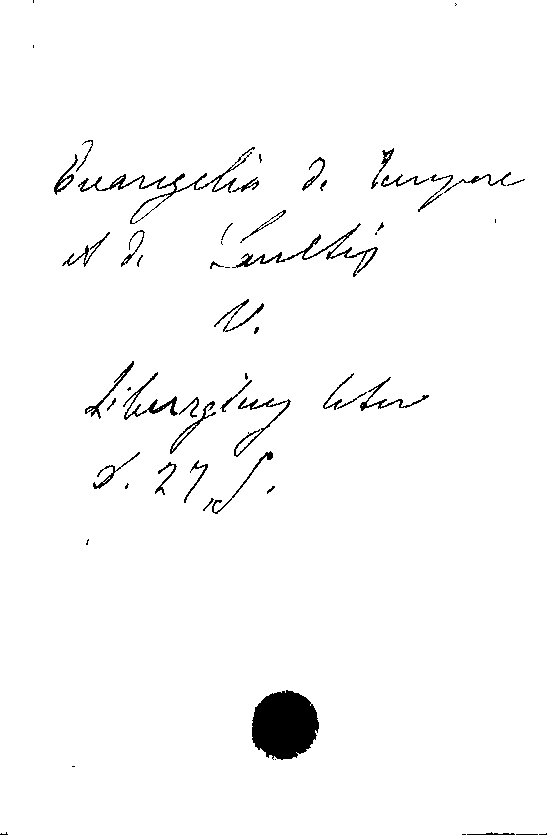 Evangelia de tempore
et de Sanctis
V.
Liturgien
d. 27,